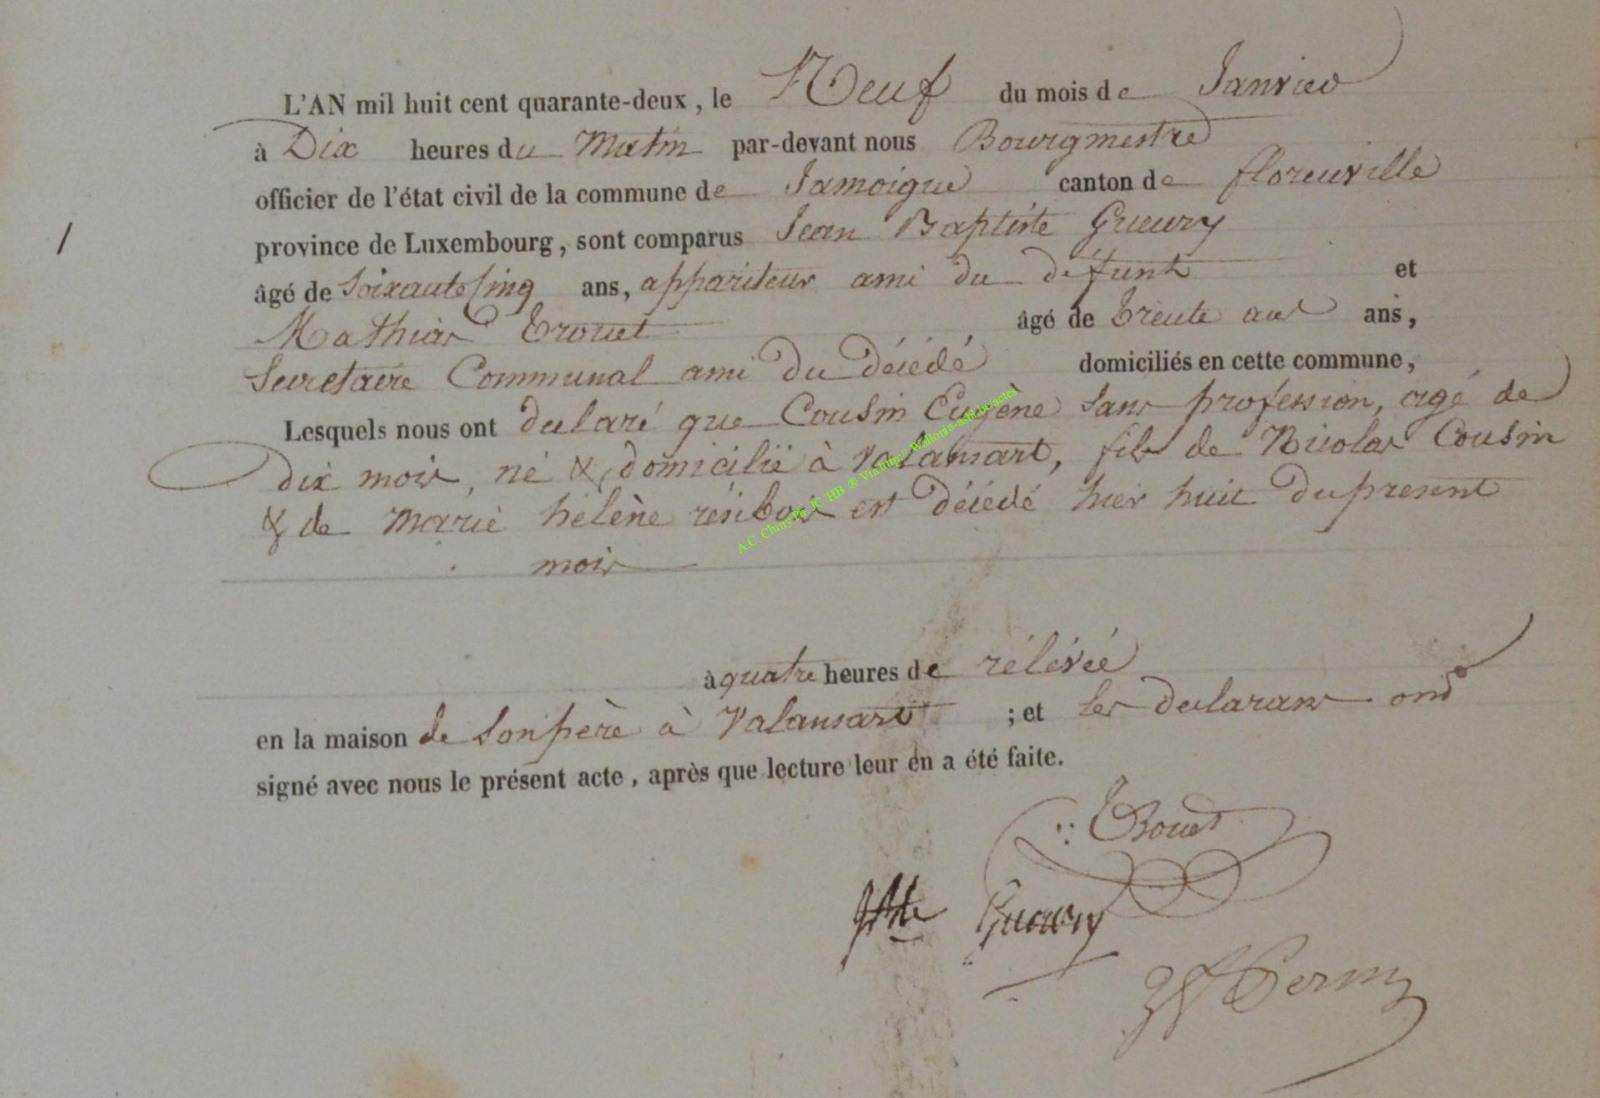 L'AN mil huit cent quarante-deux, le Neuf du mois de Janvier
à Dix heures du Matin par-devant nous Bourgmestre
officier de l'état civil de la commune de Jamoigne canton de florenville
/ province de Luxembourg, sont comparus Jean Baptiste Gueury
âgé de Soixante Cinq ans, appariteur ami du défunt et
Mathias Trouet âgé de Trente ans,
Secretaire Communal ami du décédé domiciliés en cette commune,
Lesquels nous ont declaré que Cousin Eugène Sans profession, agé de
dix mois, né & domicilié à Valansart, fils de Nicolas Cousin
& de Marie hélène résibois est décédé hier huit du present
mois
à quatre heures de rélévée
en la maison de Son père à Valansart ; et les declarans ont
signé avec nous le présent acte, après que lecture leur en a été faite.
Trouet
JBte Gueury